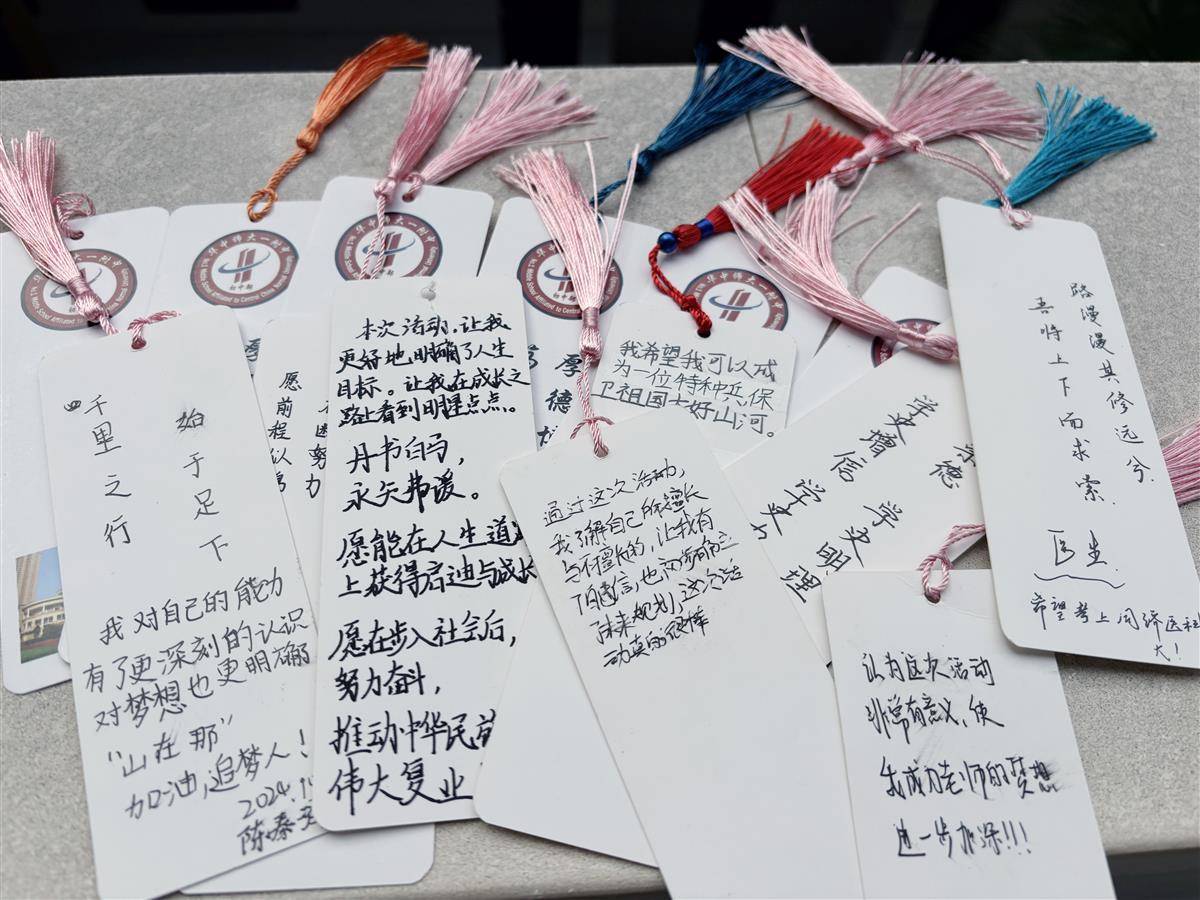 华中师大一附中
初中部
No.1 Middle School Affiliated to Central China Normal University
千里之行
始于足下
我对自己的能力
有了更深刻的认识
对梦想也更明确
“山在那”
加油,追梦人!
2024.1
陈
愿
前程以
努力
本次活动,让我
更好地明确了人生
目标。让我在成长之
路上看到明星点点。
丹书白马,
永矢弗谖。
愿能在人生道
上获得启迪与成长
愿在步入社会后,
努力奋斗,
推动中华民族
伟大复业
厚德
我希望我可以成
为一位特种兵,保
卫祖国大好山河。
通过这次活动,
我了解自己的擅长
与不擅长的,让我有
了自信,也初步确立
了未来规划,这次活
动真的很棒
崇德
学史增信
学史明理
学史力
路漫漫其修远兮
吾将上下而求索
医生
希望考上同济医社
大!
认为这次活动
非常有意义,使
我成为老师的梦想
进一步加深!!!